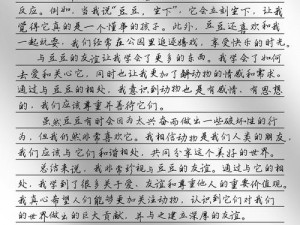 反应。例如，当我说"豆豆，坐下"，它会立刻坐下，让我
觉得它真的是一个懂事的孩子。此外，豆豆还喜欢和我
一起玩耍，我们经常在公园里追逐嬉戏，享受快乐的时光。
与豆豆的友谊让我学会了更多的东西。我学会了如何
去爱和关心它，同时也让我更加了解动物的情感和需求。
通过与豆豆的相处，我意识到动物也是有感情、有思想
的，我们应该尊重并善待它们。
虽然豆豆有时会因为太兴奋而做出一些破坏性的行
为，但我们依然非常喜欢它。我相信动物是我们人类的朋友，
我们应该与它们和谐相处，共同分享这个美好的世界。
总结来说，我非常珍视与豆豆的友谊。通过与它的相
处，我学到了很多关于爱、友谊和尊重他人的重要价值观。
我真心希望人们能够更加关注动物，认识到它们对我们
的世界做出的巨大贡献，并与之建立深厚的友谊。